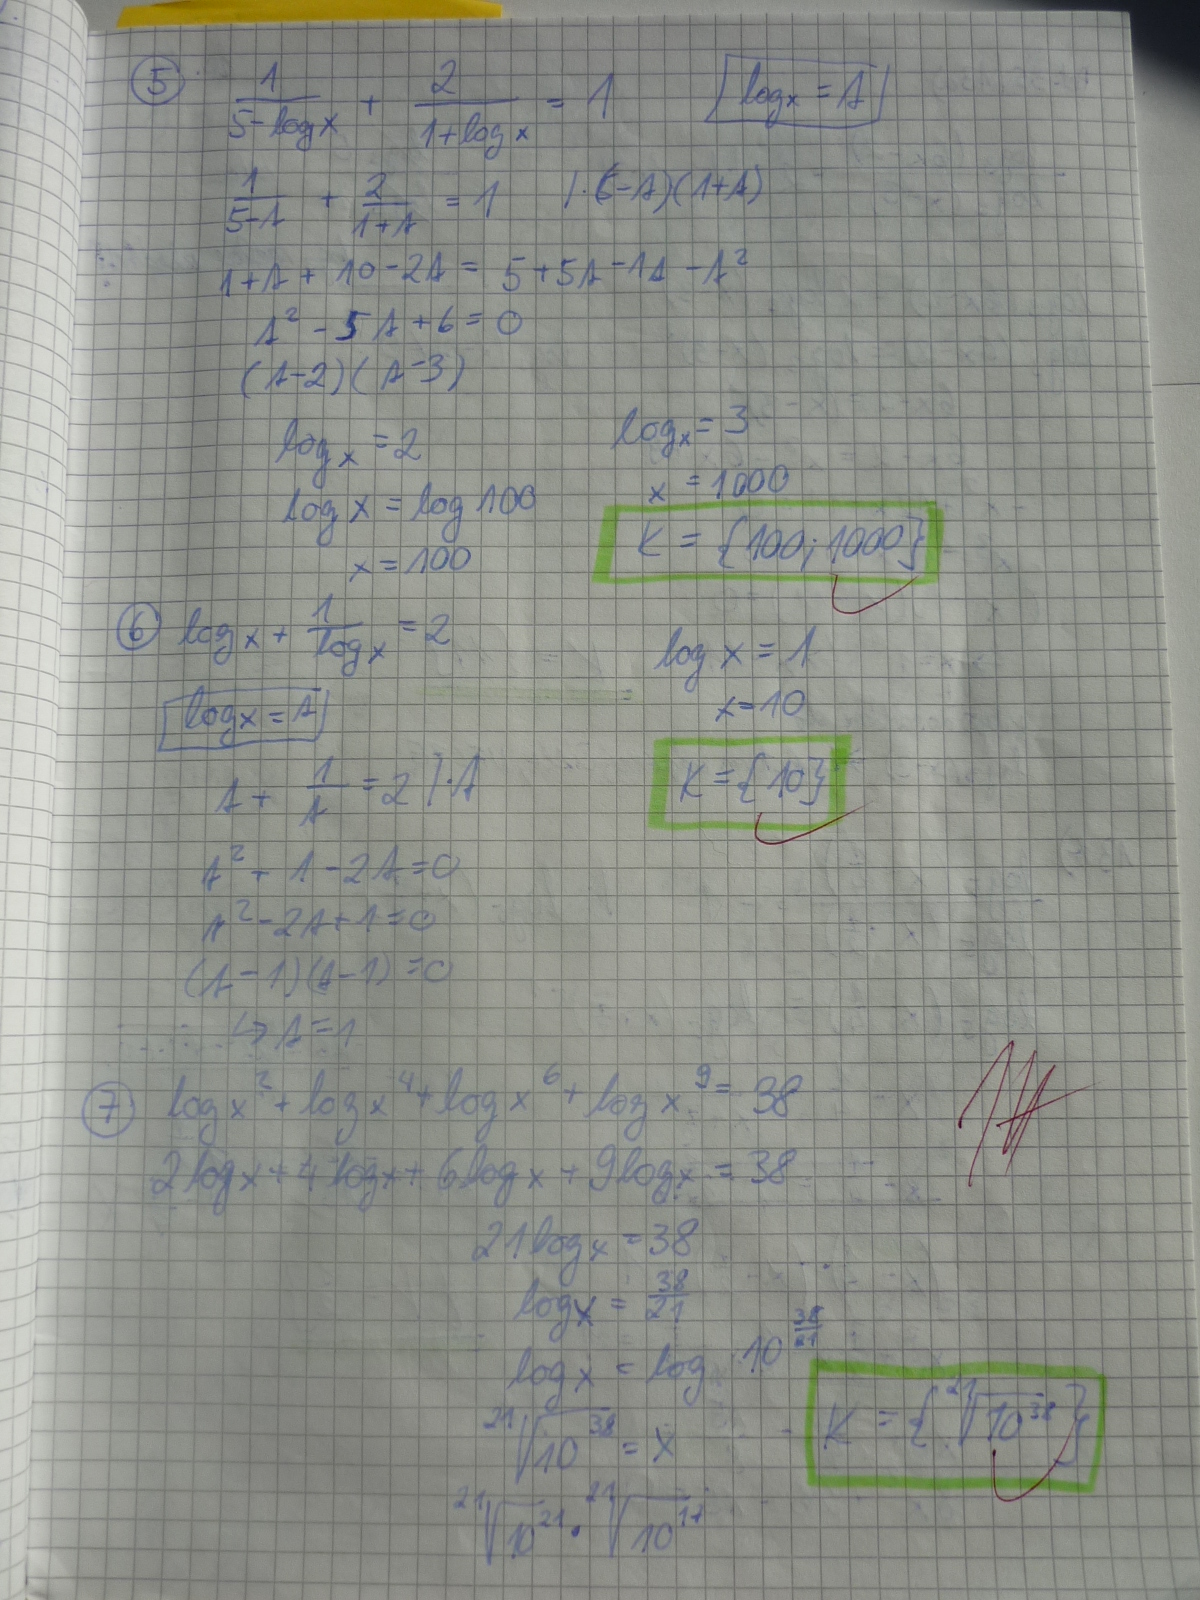 5 1/(5-log x) + 2/(1+log x) = 1 log x = A
1/(5-A) + 2/(1+A) = 1 /·(5-A)(1+A)
1+A + 10-2A = 5+5A-1A-A²
A² - 5A + 6 = 0
(A-2)(A-3)
log x = 2 log x = 3
log x = log 100 x = 1000
x = 100 K = {100; 1000}
6 log x + 1/log x = 2 log x = 1
log x = A x = 10
A + 1/A = 2 /·A K = {10}
A² + 1 - 2A = 0
A² - 2A + 1 = 0
(A-1)(A-1) = 0
↳ A = 1
7 log x² + log x⁴ + log x⁶ + log x⁹ = 38
2 log x + 4 log x + 6 log x + 9 log x = 38
21 log x = 38
log x = 38/21
log x = log 10^(38/21)
²¹√10³⁸ = x K = {²¹√10³⁸}
²¹√10²¹ · ²¹√10¹⁷